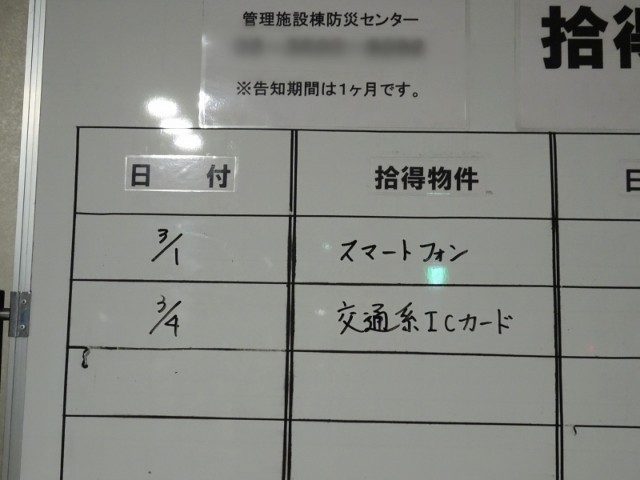 管理施設棟防災センター
※告知期間は1ヶ月です。
拾得
日 付
拾得物件
日
3/1
スマートフォン
3/4
交通系ICカード